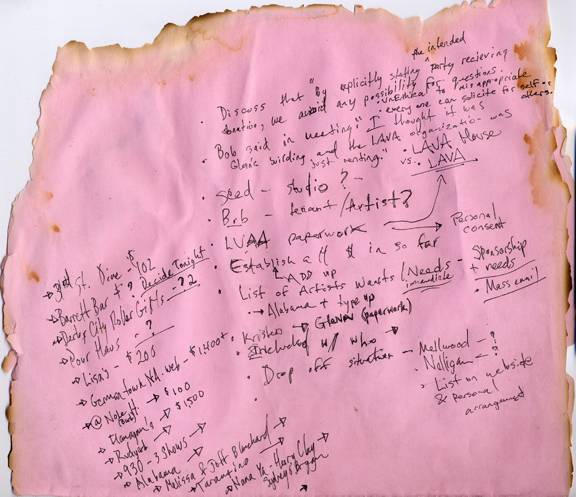 the intended
• Discuss that "By explicitly stating party recieving
donation, we avoid any possibility for questions.
• unethical to misappropriate
• everyone can solicite for self
others.
• Bob said in meeting "I thought it was
Glen's building and the LAVA organization was
just renting."
• LAVA House
vs. LAVA
• Seed - studio?
• Bob - tenant/Artist?
• LVAA paperwork
Personal
consent
• Establish all $ in so far
Add up
• List of Artists Wants/Needs
immediate
Sponsorship
+ needs
Mass email
Alabama + type up
• Kristen Glenn (paperwork)
• Included w/ who
• Drop off situation - Mellwood - ?
• Nulligan - ?
• List on website
& personal
arrangement
3rd St. Dive $402
Barrett Bar + ? Decide Tonight
Derby City Roller Girls - ??
Pour Haus - ?
Lisa's - $200
Germantown - $1,400+
@ Nite $100
Flanagan's $1,500
Rudyard
930 - 3 Shows
Alabama
Melissa & Jeff Blanchard
Tarantino
Nona
Sydney's Bryan